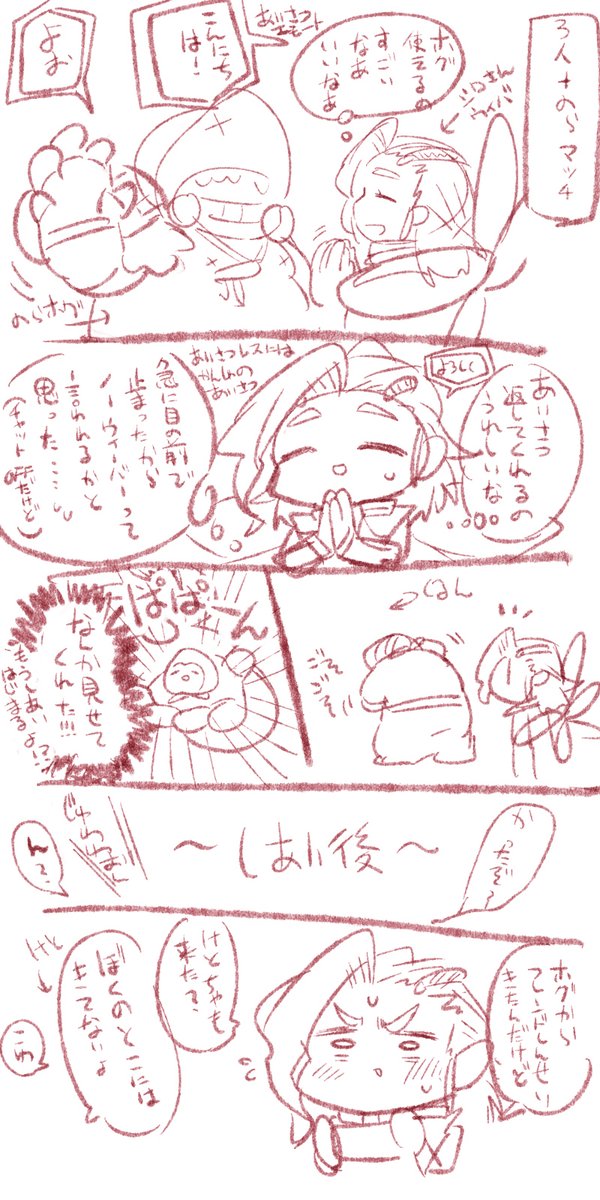 3人+のらマッチ
シロさん
ウィーバー
ホグ
使えるの
すごい
なあ
いいなあ
あいさつ
エモート
こんにち
は!
よお
のらホグ
あいさつ
返してくれるの
うれしいな
よろしく
あいさつレスには
かんしゃの
あいさつ
急に目の前で
止まったから
ノーウィーバーって
言われるかと
思った……
(チャット
ぱぱーん
ごそ
ごそ
なんか見せて
くれた!!!
もうしあい
はじまるよ!?
かったぞ〜
〜しあい後〜
ん?
ホグから
きたんだけど
けとちゃも
来た?
けと
ぼくのとこには
きてないよ
こわ